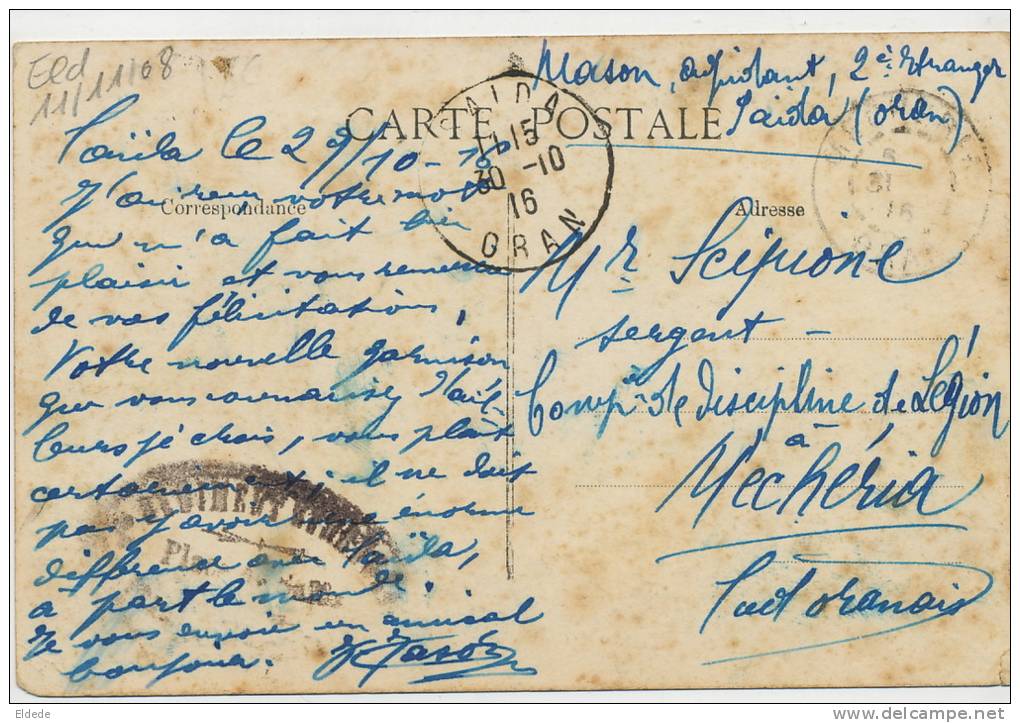 Eld
11/11/08
Mason, adjudant, 2e Etranger
Saïda (Oran)
CARTE POSTALE
SAIDA
11 15
30 -10
16
ORAN
31
16
Correspondance
Adresse
Saïda le 29/10-16
J'ai reçu votre mot
qui m'a fait bien
plaisir et vous remercie
de vos félicitations,
Votre nouvelle garnison
que vous connaissez d'ail-
leurs je crois, vous plaît
certainement; il ne doit
pas y avoir une énorme
différence avec Saïda,
à part le monde.
Je vous envoie un amical
bonjour.
Mason
REGIMENT
Mr Scipione
sergent -
Compie de Discipline de Légion
à
Mechéria
Sud oranais
Eldede
www.delcampe.net